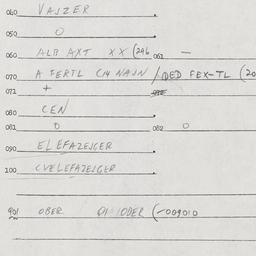 060 VAJZER
050 0
060 ALB AXT XX (246 061 —
070 A FERTL CH NAJN / DED FEX-TL (20
071 +
080 CEN
081 0 082 0
090 ELEFAZEJGER
100 CVELEFAZEJGER
901 OBER DI LODER (-009010